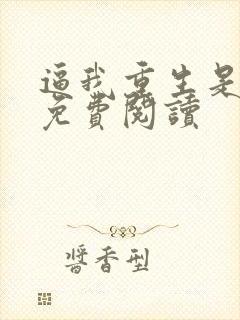 逼我重生是
免費閱讀
醬香型